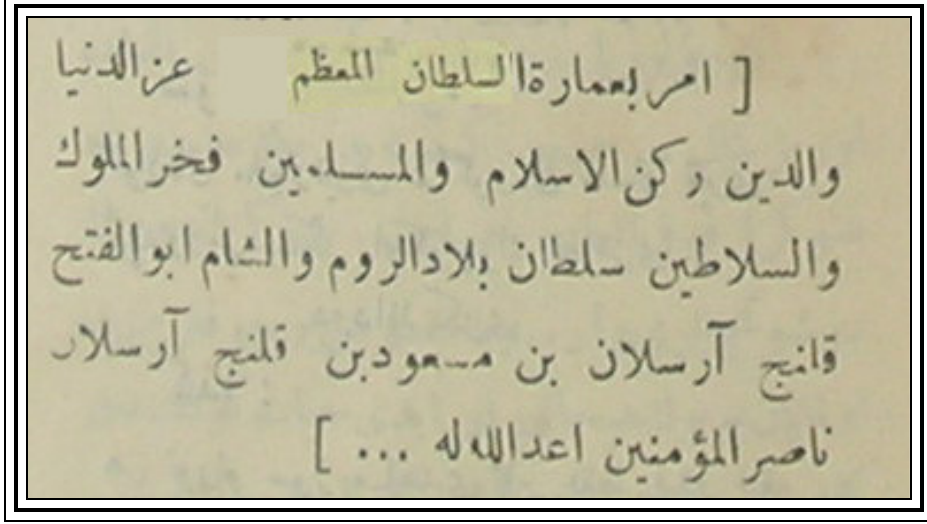 [ امر بعمارة السلطان المعظم عزالدنيا
والدين ركن الاسلام والمسلمين فخر الملوك
والسلاطين سلطان بلاد الروم والشام ابو الفتح
قلنج آرسلان بن مسعود بن قلنج آرسلان
ناصر المؤمنين اعدالله له ... ]